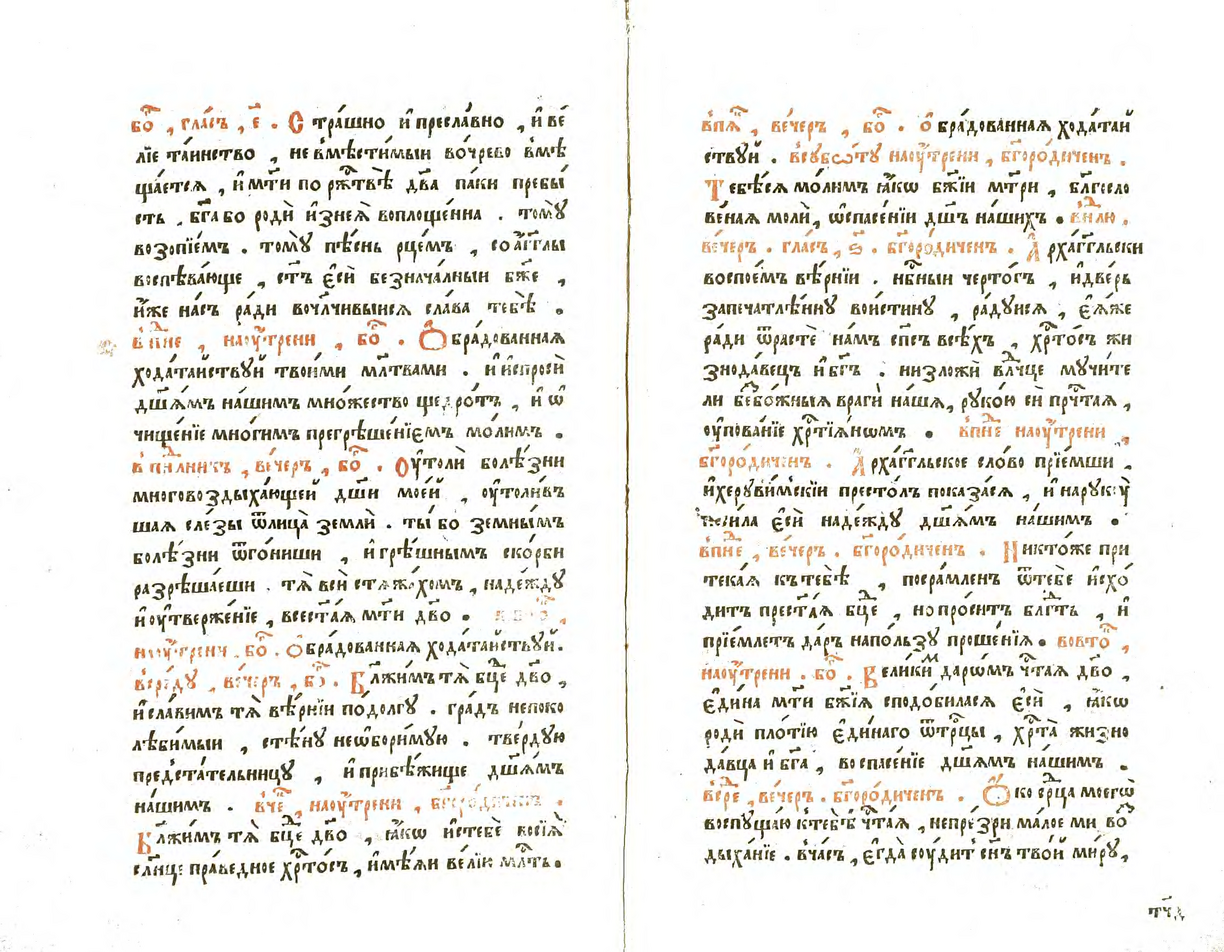 бо҃ , гла́съ , є҃ . Стра́шно и҆ пресла́вно , и҆ ве́
лїе та́инство , не вмѣсти́мыи во чре́во вмѣ
ща́ется , и҆ мт҃и по ржⷭ҇твѣ̀ дв҃а па́ки пребы́
сть . бг҃а бо родѝ и҆знеѧ̀ воплоще́нна . томꙋ̀
возопїе́мъ . томꙋ пѣ́снь рце́мъ , со а҆́гг҃лы
воспѣва́юще , ст҃ъ є҆сѝ безнача́лныи бж҃е ,
и҆́же на́съ ра́ди вочл҃чивыисѧ сла́ва тебѣ̀ .
в пⷧ҇не , наоу҆́трени , бо҃ . Ѻ҆бра́дованнаѧ
хода́таиствꙋй твои́ми мл҃твами . и҆ и҆спросѝ
дш҃а́мъ на́шимъ мно́жество щедро́тъ , и҆ ѡ҆
чище́нїе мно́гимъ прегрѣше́нїємъ мо́лимъ .
в пⷧ҇лникъ , ве́черъ , бо҃ . Оу҆толи болѣ́зни
многовоздыха́ющей дш҃и мое́й , оу҆то́лившаѧ
шаѧ сле́зы ѿлица̀ землѝ . ты́ бо земны́мъ
болѣ́зни ѿго́ниши , и҆ грѣ́шнымъ ско́рби
разрѣша́еши . тѧ̀ всѝ стѧжа́хомъ , наде́ждꙋ
и҆ оу҆твержє́нїе , всест҃а́ѧ мт҃и дв҃о .
наоу҆́трени . бо҃ . Ѻ҆бра́дованнаѧ хода́таиствꙋй .
в сре́дꙋ , ве́черъ , бо҃ . Бл҃жи́мъ тѧ̀ бц҃е дв҃о ,
и҆ сла́вимъ тѧ̀ вѣ́рнїи по до́лгꙋ . гра́дъ непоко
лѣби́мыи , стѣ́нꙋ неѡбори́мꙋю . тве́рдꙋю
предста́тельницꙋ , и҆ прибѣ́жище дш҃а́мъ
на́шимъ . в че҃ , наоу҆́трени ,
Бл҃жи́мъ тѧ̀ бц҃е дв҃о , ꙗ҆́кѡ и҆стебє̀ возсїѧ̀
сл҃нце пра́ведное хрⷭ҇то́съ , и҆мѣ́ѧи ве́лїю мл҃ть .
впѧ҃ , ве́черъ , бо҃ . ѻ҆бра́дованнаѧ хода́таи
ствꙋй . всꙋббѡ́тꙋ наоу҆́трени , бг҃оро́диченъ .
Тебе́сѧ мо́лимъ ꙗ҆́кѡ бж҃їи мт҃ри , бл҃госло
ве́наѧ молѝ , ѡ҆спасе́нїи дш҃ъ на́шихъ . в нⷣлю .
ве́черъ . гла́съ , ѕ҃ . бг҃оро́диченъ . А҆рха́гг҃льски
воспое́мъ вѣ́рнїи . нб҃ныи черто́гъ , и҆две́рь
запечатлѣ́ннꙋ вои́стинꙋ , ра́дꙋисѧ , є҆ѧ́же
ра́ди ѿрастѐ на́мъ сп҃съ всѣ́хъ , хрⷭ҇то́съ жи
знода́вецъ и҆ бг҃ъ . низложѝ влⷣчце мꙋчи́те
ли безбо́жныѧ врагѝ на́ша , рꙋко́ю сѝ прчⷭ҇таѧ ,
оу҆пова́нїе хрⷭ҇тїѧ́нѡмъ . впⷧ҇не наоу҆́трени ,
бг҃оро́диченъ . А҆рха́гг҃льское сло́во прїе́мши .
и҆херꙋви́мскїи престо́лъ показа́сѧ , и҆ нарꙋкꙋ̀
носи́ла є҆сѝ наде́ждꙋ дш҃а́мъ на́шимъ .
впⷧ҇не , ве́черъ . бг҃оро́диченъ . Никто́же при
тека́ѧ къ тебѣ̀ , посра́мленъ ѿтебѐ и҆схо́
дитъ прест҃а́ѧ бц҃е , но про́ситъ блг҃ть , и҆
прїе́млетъ да́ръ напо́льзꙋ проше́нїѧ . вовто҃ ,
наоу҆́трени . бо҃ . Вели́ки даро́мъ чⷭ҇таѧ дв҃о ,
є҆ди́на мт҃и бж҃їѧ сподо́биласѧ є҆сѝ , ꙗ҆́кѡ
родѝ пло́тїю є҆ди́наго ѿтрⷪ҇цы , хрⷭ҇та̀ жизно
да́вца и҆ бг҃а , во спасе́нїе дш҃а́мъ на́шимъ .
всре҃ , ве́черъ . бг҃оро́диченъ . Ѻ҆́ко се́рдца моегѡ̀
воспꙋща́ю к тебѣ̀ чⷭ҇таѧ , непре́зри ма́лое ми во́
дыха́нїе . вча́съ , є҆гда̀ сꙋ́дитъ сн҃ъ тво́й ми́рꙋ ,